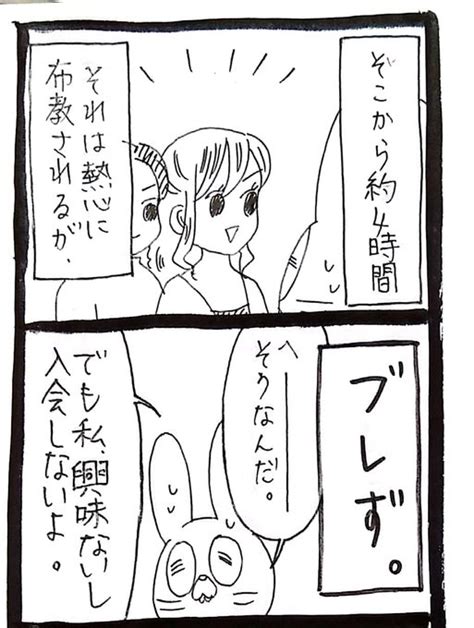 そこから約4時間
それは熱心に
布教されるが、
ブレず。
へーーー
そうなんだ。
でも私、興味ないし
入会しないよ。